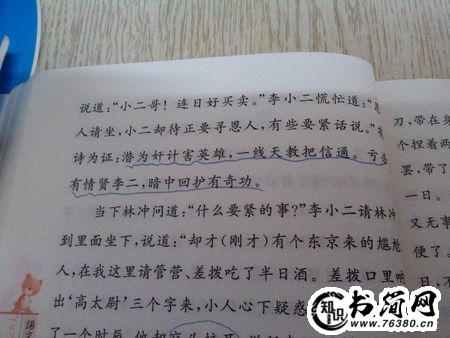 说道：“小二哥！连日好买卖。”李小二慌忙道：“恩
人请坐，小二却待正要寻恩人，有些要紧话说。”有
诗为证：潜为奸计害英雄，一线天教把信通。亏
有情贤李二，暗中回护有奇功。
当下林冲问道：“什么要紧的事？”李小二请林冲
到里面坐下，说道：“却才（刚才）有个东京来的尴尬
人，在我这里请管营、差拨吃了半日酒。差拨口里
出‘高太尉’三个字来，小人心下疑惑
了一个时辰
刀，带在身
个捏着两
罢，带了
一日。
又无事
便了。
日，不
语文
书简网
知识
www.76380.cn